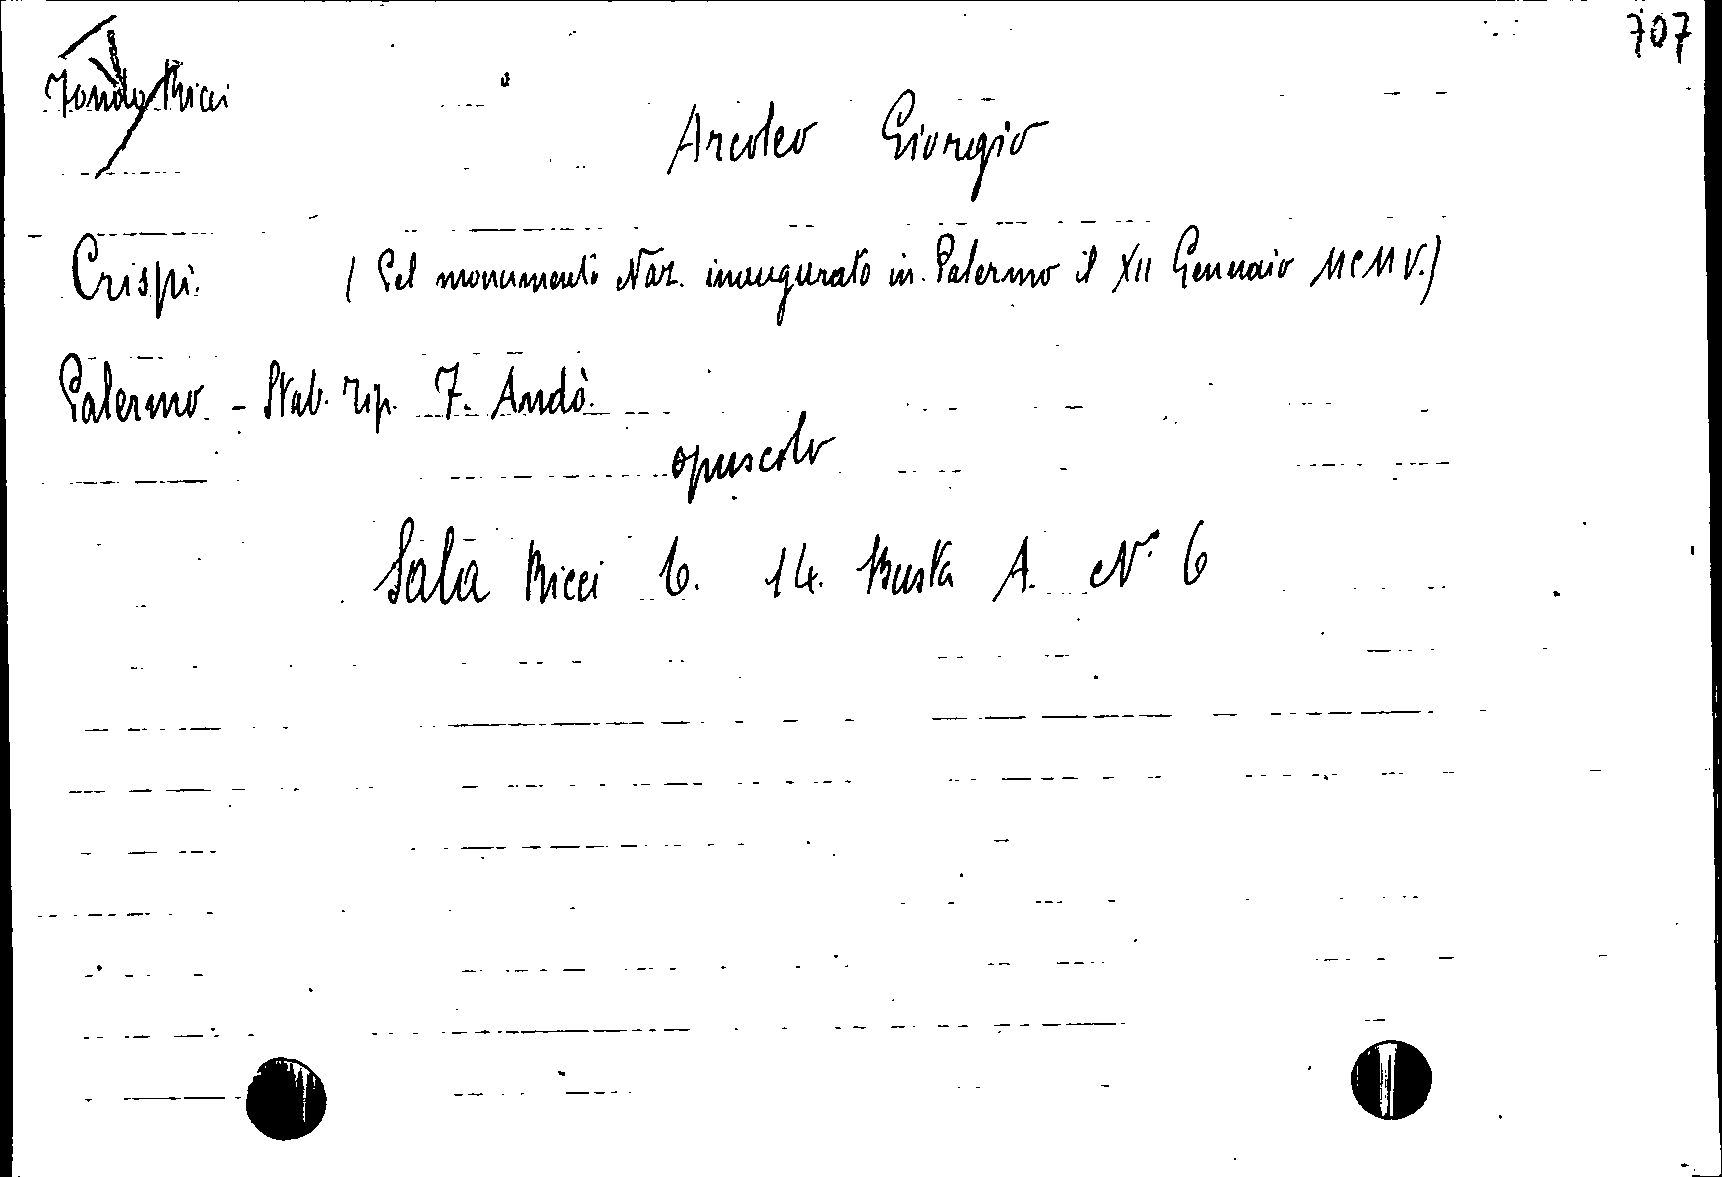 707
Fondo Ricci
Arcoleo Giorgio
Crispi. (Pel monumento Naz. inaugurato in Palermo il XII Gennaio MCMV.)
Palermo - Stab. Tip. F. Andò.
opuscolo
Sala Ricci C. 14. Busta A. N° 6